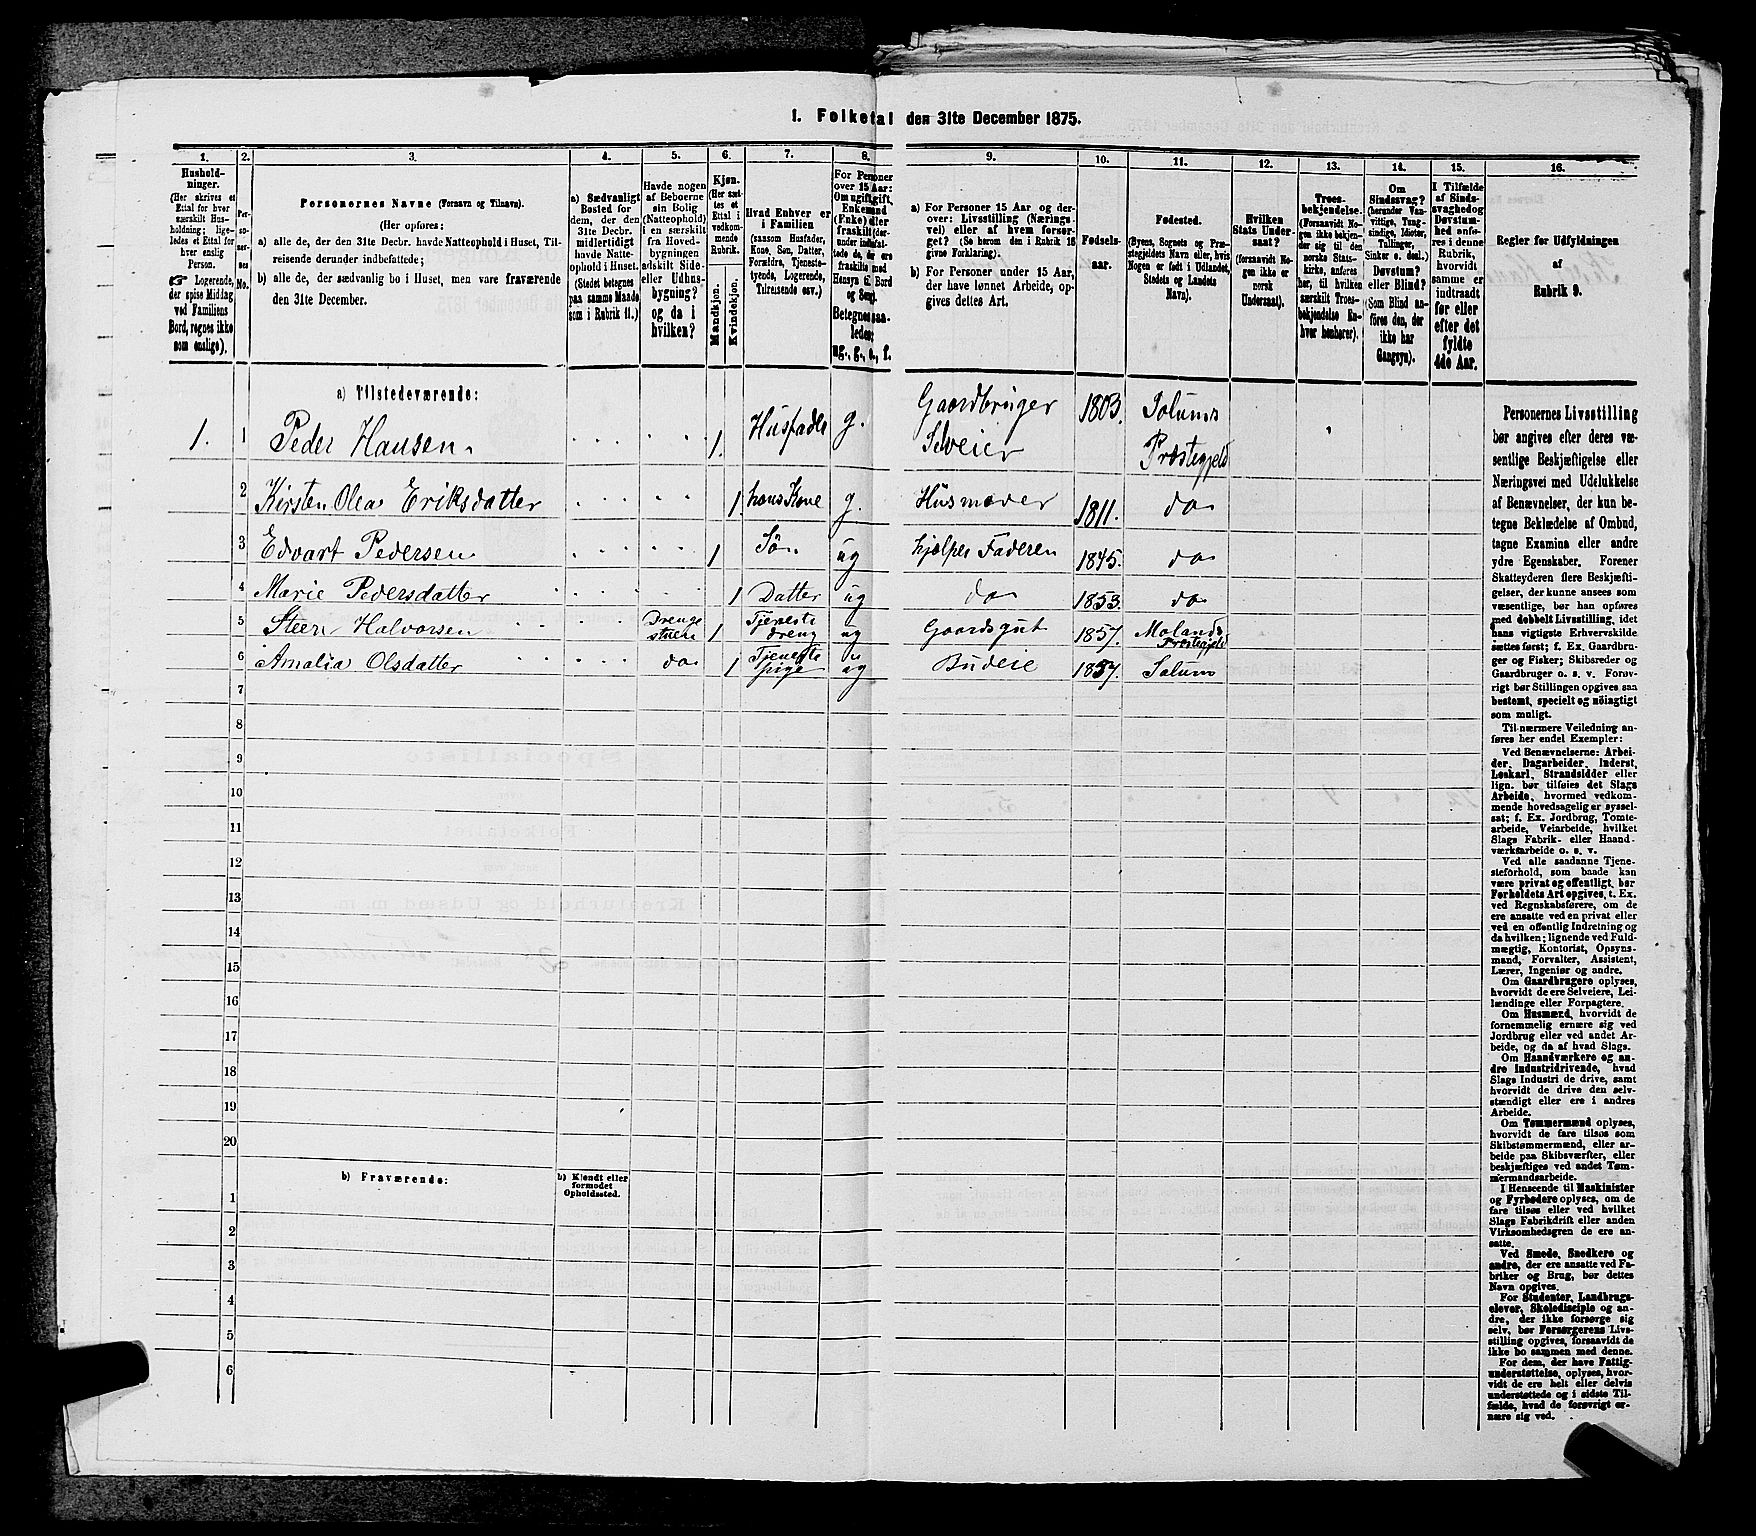 1. Folketal den 31te December 1875.
1.
2.
3.
4.
5.
6.
7.
8.
9.
10.
11.
12.
13.
14.
15.
16.
Hushold-
ninger.
(Her skrives et
Ettal for hver
særskilt Hus-
holdning; lige-
ledes et Ettal for
hver enslig
Person.
☞ Logerende,
der spise Middag
ved Familiens
Bord, regnes ikke
som enslige).
Per-
so-
ner-
nes
No.
Personernes Navne (Fornavn og Tilnavn).
(Her opføres:
a) alle de, der den 31te Decbr. havde Natteophold i Huset, Til-
reisende derunder indbefattede;
b) alle de, der sædvanlig bo i Huset, men vare fraværende
den 31te December.
a) Sædvanligt
Bosted for
dem, der den
31te Decbr.
midlertidigt
havde Natte-
ophold i Huset.
(Stedet betegnes
paa samme Maade,
som i Rubrik 11.)
Havde nogen
af Beboerne
sin Bolig
(Natteophold)
i en særskilt
fra Hoved-
bygningen
adskilt Side-
eller Udhus-
bygning?
og da i
hvilken?
Kjøn.
(Her sæt-
tes et
Ettal i
vedkom-
mende
Rubrik.
Mandkjøn.
Kvindekjøn.
Hvad Enhver er
i Familien
(saasom Husfader,
Kone, Søn, Datter,
Forældre, Tjeneste-
tyende, Logerende,
Tilreisende osv.)
For Personer
over 15 Aar:
Om ugift, gift,
Enkemand
(Enke) eller
fraskilt (der-
under indbefat-
tede de, der ere
fraskilte med
Hensyn til Bord
og Seng).
Betegnes saa-
ledes:
ug., g., e., f.
a) For Personer 15 Aar og der-
over: Livsstilling (Nærings-
vei) eller af hvem forsør-
get? (Se herom den i Rubrik 16
givne Forklaring).
b) For Personer under 15 Aar,
der have lønnet Arbeide, op-
gives dettes Art.
Fødsels-
aar.
Fødested.
(Byens, Sognets og Præ-
stegjeldets Navn eller, hvis
Nogen er født i Udlandet,
Stedets og Landets
Navn).
Hvilken
Stats Under-
saat?
(forsaavidt No-
gen ikke er
norsk
Undersaat).
Troes-
bekjendelse.
(Forsaavidt No-
gen ikke bekjen-
der sig til den
norske Stats-
kirke, anføres
her, til hvilken
særskilt Troes-
bekjendelse En-
hver henhører).
Om
Sindssvag?
(herunder Van-
vittige, Tung-
sindige, Idioter,
Tullinger,
Sinker o. desl.)
Døvstum?
eller Blind?
(Som Blind an-
føres den, der
ikke har
Gangsyn).
I Tilfælde
af Sinds-
svaghed og
Døvstum-
hed anfø-
res i denne
Rubrik,
hvorvidt
samme er
indtraadt
før eller
efter det
fyldte
4de Aar.
Regler for Udfyldningen
af
Rubrik 9.
a) Tilstedeværende:
1. 1 Peder Hansen 1. Husfader g. Gaardbruger Selveier 1803. Solums Præstegjeld
2 Kirsten Olea Eriksdatter 1 hans Kone g. Husmoder 1811. do
3 Edvart Pedersen 1 Søn ug hjelper Faderen 1845. do
4 Marie Pedersdatter 1 Datter ug do 1853. do
5 Steen Halvorsen Drenge stuen 1 Tjeneste dreng ug Gaardsgut 1857. Molands Præstegjeld
6 Amalia Olsdatter do 1 Tjeneste pige ug Budeie 1857. Solum
7
8
9
10
11
12
13
14
15
16
17
18
19
20
b) Fraværende:
b) Kjendt eller
formodet
Opholdssted.
1
2
3
4
5
6
Personernes Livsstilling
bør angives efter deres væ-
sentlige Beskjæftigelse eller
Næringsvei med Udelukkelse
af Benævnelser, der kun be-
tegne Beklædelse af Ombud,
tagne Examina eller andre
ydre Egenskaber. Forener
Skatteyderen flere Beskjæfti-
gelser, der kunne ansees som
væsentlige, bør han opføres
med dobbelt Livsstilling, idet
hans vigtigste Erhvervskilde
sættes først; f. Ex. Gaardbru-
ger og Fisker; Skibsreder og
Gaardbruger o. s. v. Forøv-
rigt bør Stillingen opgives saa
bestemt, specielt og nøiagtigt
som muligt.
Til nærmere Veiledning an-
føres her endel Exempler:
Ved Benævnelserne: Arbei-
der, Dagarbeider, Inderst,
Løskarl, Strandsidder eller
lign. bør tilføies det Slags
Arbeide, hvormed vedkom-
mende hovedsagelig er syssel-
sat; f. Ex. Jordbrug, Tomte-
arbeide, Veiarbeide, hvilket
Slags Fabrik- eller Haand-
værksarbeide o. s. v.
Ved alle saadanne Tjene-
steforhold, som baade kan
være privat og offentligt, bør
Forholdets Art opgives, t. Ex.
ved Regnskabsførere, om de
ere ansatte ved en privat eller
ved en offentlig Indretning og
da hvilken; lignende ved Fuld-
mægtig, Kontorist, Opsyns-
mand, Forvalter, Assistent,
Lærer, Ingeniør og andre.
Om Gaardbrugere oplyses,
hvorvidt de ere Selveiere, Lei-
lændinge eller Forpagtere.
Om Husmænd, hvorvidt de
fornemmelig ernære sig ved
Jordbrug eller ved andet Ar-
beide, og da af hvad Slags.
Om Haandværkere og an-
dre Industridrivende, hvad
Slags Industri de drive, samt
hvorvidt de drive den selv-
stændigt eller ere i andres
Arbeide.
Om Tømmermænd oplyses,
hvorvidt de fare tilsøs som
Skibstømmermænd, eller ar-
beide paa Skibsværfter, eller
beskjæftiges ved andet Tøm-
mermandsarbeide.
I Henseende til Maskinister
og Fyrbødere oplyses, om de
fare tilsøs eller ved hvilket
Slags Fabrikdrift eller anden
Virksomhedsgren de ere an-
satte.
Ved Smede, Snedkere og
andre, der ere ansatte ved Fa-
briker og Brug, bør dettes
Navn opgives.
For Studenter, Landbrugs-
elever, Skoledisciple og an-
dre, der ikke forsørge sig
selv, bør Forsørgerens Livs-
stilling opgives, forsaavidt de
ikke bo sammen med denne.
For dem, der have Fattig-
understøttelse, oplyses, hvor-
vidt de ere helt eller delvis
understøttede og i sidste Til-
fælde, hvad de forøvrigt er-
nære sig ved.